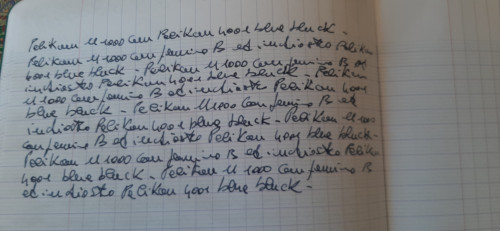 Pelikan M 1000 con Pelikan 4001 blue black -
Pelikan M 1000 con pennino B ed inchiostro Pelikan
4001 blue black - Pelikan M 1000 con pennino B ed
inchiostro Pelikan 4001 blue black - Pelikan
M 1000 con pennino B ed inchiostro Pelikan 4001
blue black - Pelikan M 1000 con pennino B ed
inchiostro Pelikan 4001 blue black - Pelikan M 1000
con pennino B ed inchiostro Pelikan 4001 blue black -
Pelikan M 1000 con pennino B ed inchiostro Pelikan
4001 blue black - Pelikan M 1000 con pennino B
ed inchiostro Pelikan 4001 blue black -